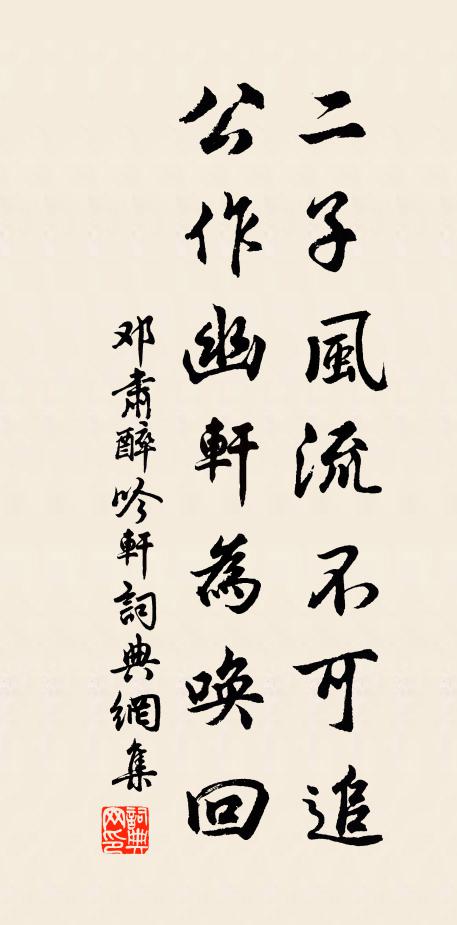 二子風流不可追
公作幽軒為喚回
邓肃醉吟軒詞典網集
詞典网印